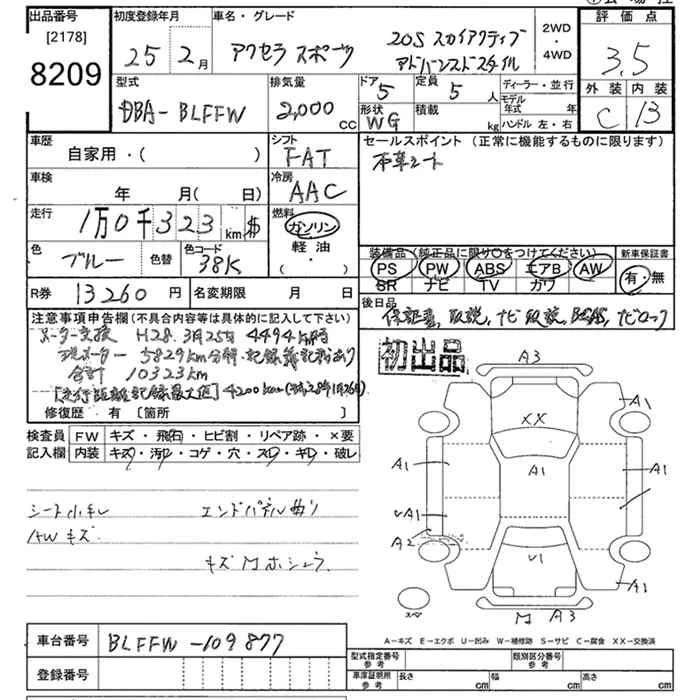 出品番号 初度登録年月 車名・グレード 評価点
[2178]
8209
25年 2月 アクセラ スポーツ 20S スカイアクティブ
アドバーンスドスタイル
2WD
・
4WD
3.5
型式 DBA- BLFFW 排気量 2,000 cc
ドア 5 定員 5 人 ディーラー・並行
形状 WG 積載 kg モデル年式 年
ハンドル 左・右
外装 内装
C 13
車歴 自家用・( ) シフト FAT
セールスポイント (正常に機能するものに限ります)
本革シート
車検 年 月( 日) 冷房 AAC
走行 1万0千323 km
燃料 ガソリン
軽油
・( )
色 ブルー 色替 色コード 38K
装備品 (純正品に限り○をつけてください) 新車保証書
PS PW ABS エアB AW 有・無
SR ナビ TV カワ
R券 13260円 名変期限 月 日
後日品
保証書, 取説, ナビ取説, ナビロック
注意事項申告欄(不具合内容等は具体的に記入して下さい)
メーター交換 H28.3月25日 4494km時
5829km
合計 10323km
修復歴 有 [箇所 ]
初出品
検査員 FW キズ・飛石・ヒビ割・リペア跡・×要
記入欄 内装 キズ・汚レ・コゲ・穴・スレ・キレ・破レ
シート小キレ エンドパネル曲り
AWキズ
キズMホシュウ
A3
A1
XX
A1 A1 A1
UA1
A2
U1
A1
スペ
M A3
A-キズ E-エクボ U-凹み W-補修跡 S-サビ C-腐食 XX-交換済
車台番号 BLFFW -109877
登録番号
型式指定番号 参考 類別区分番号 参考
車庫証明用 参考 長さ cm 幅 cm 高さ cm